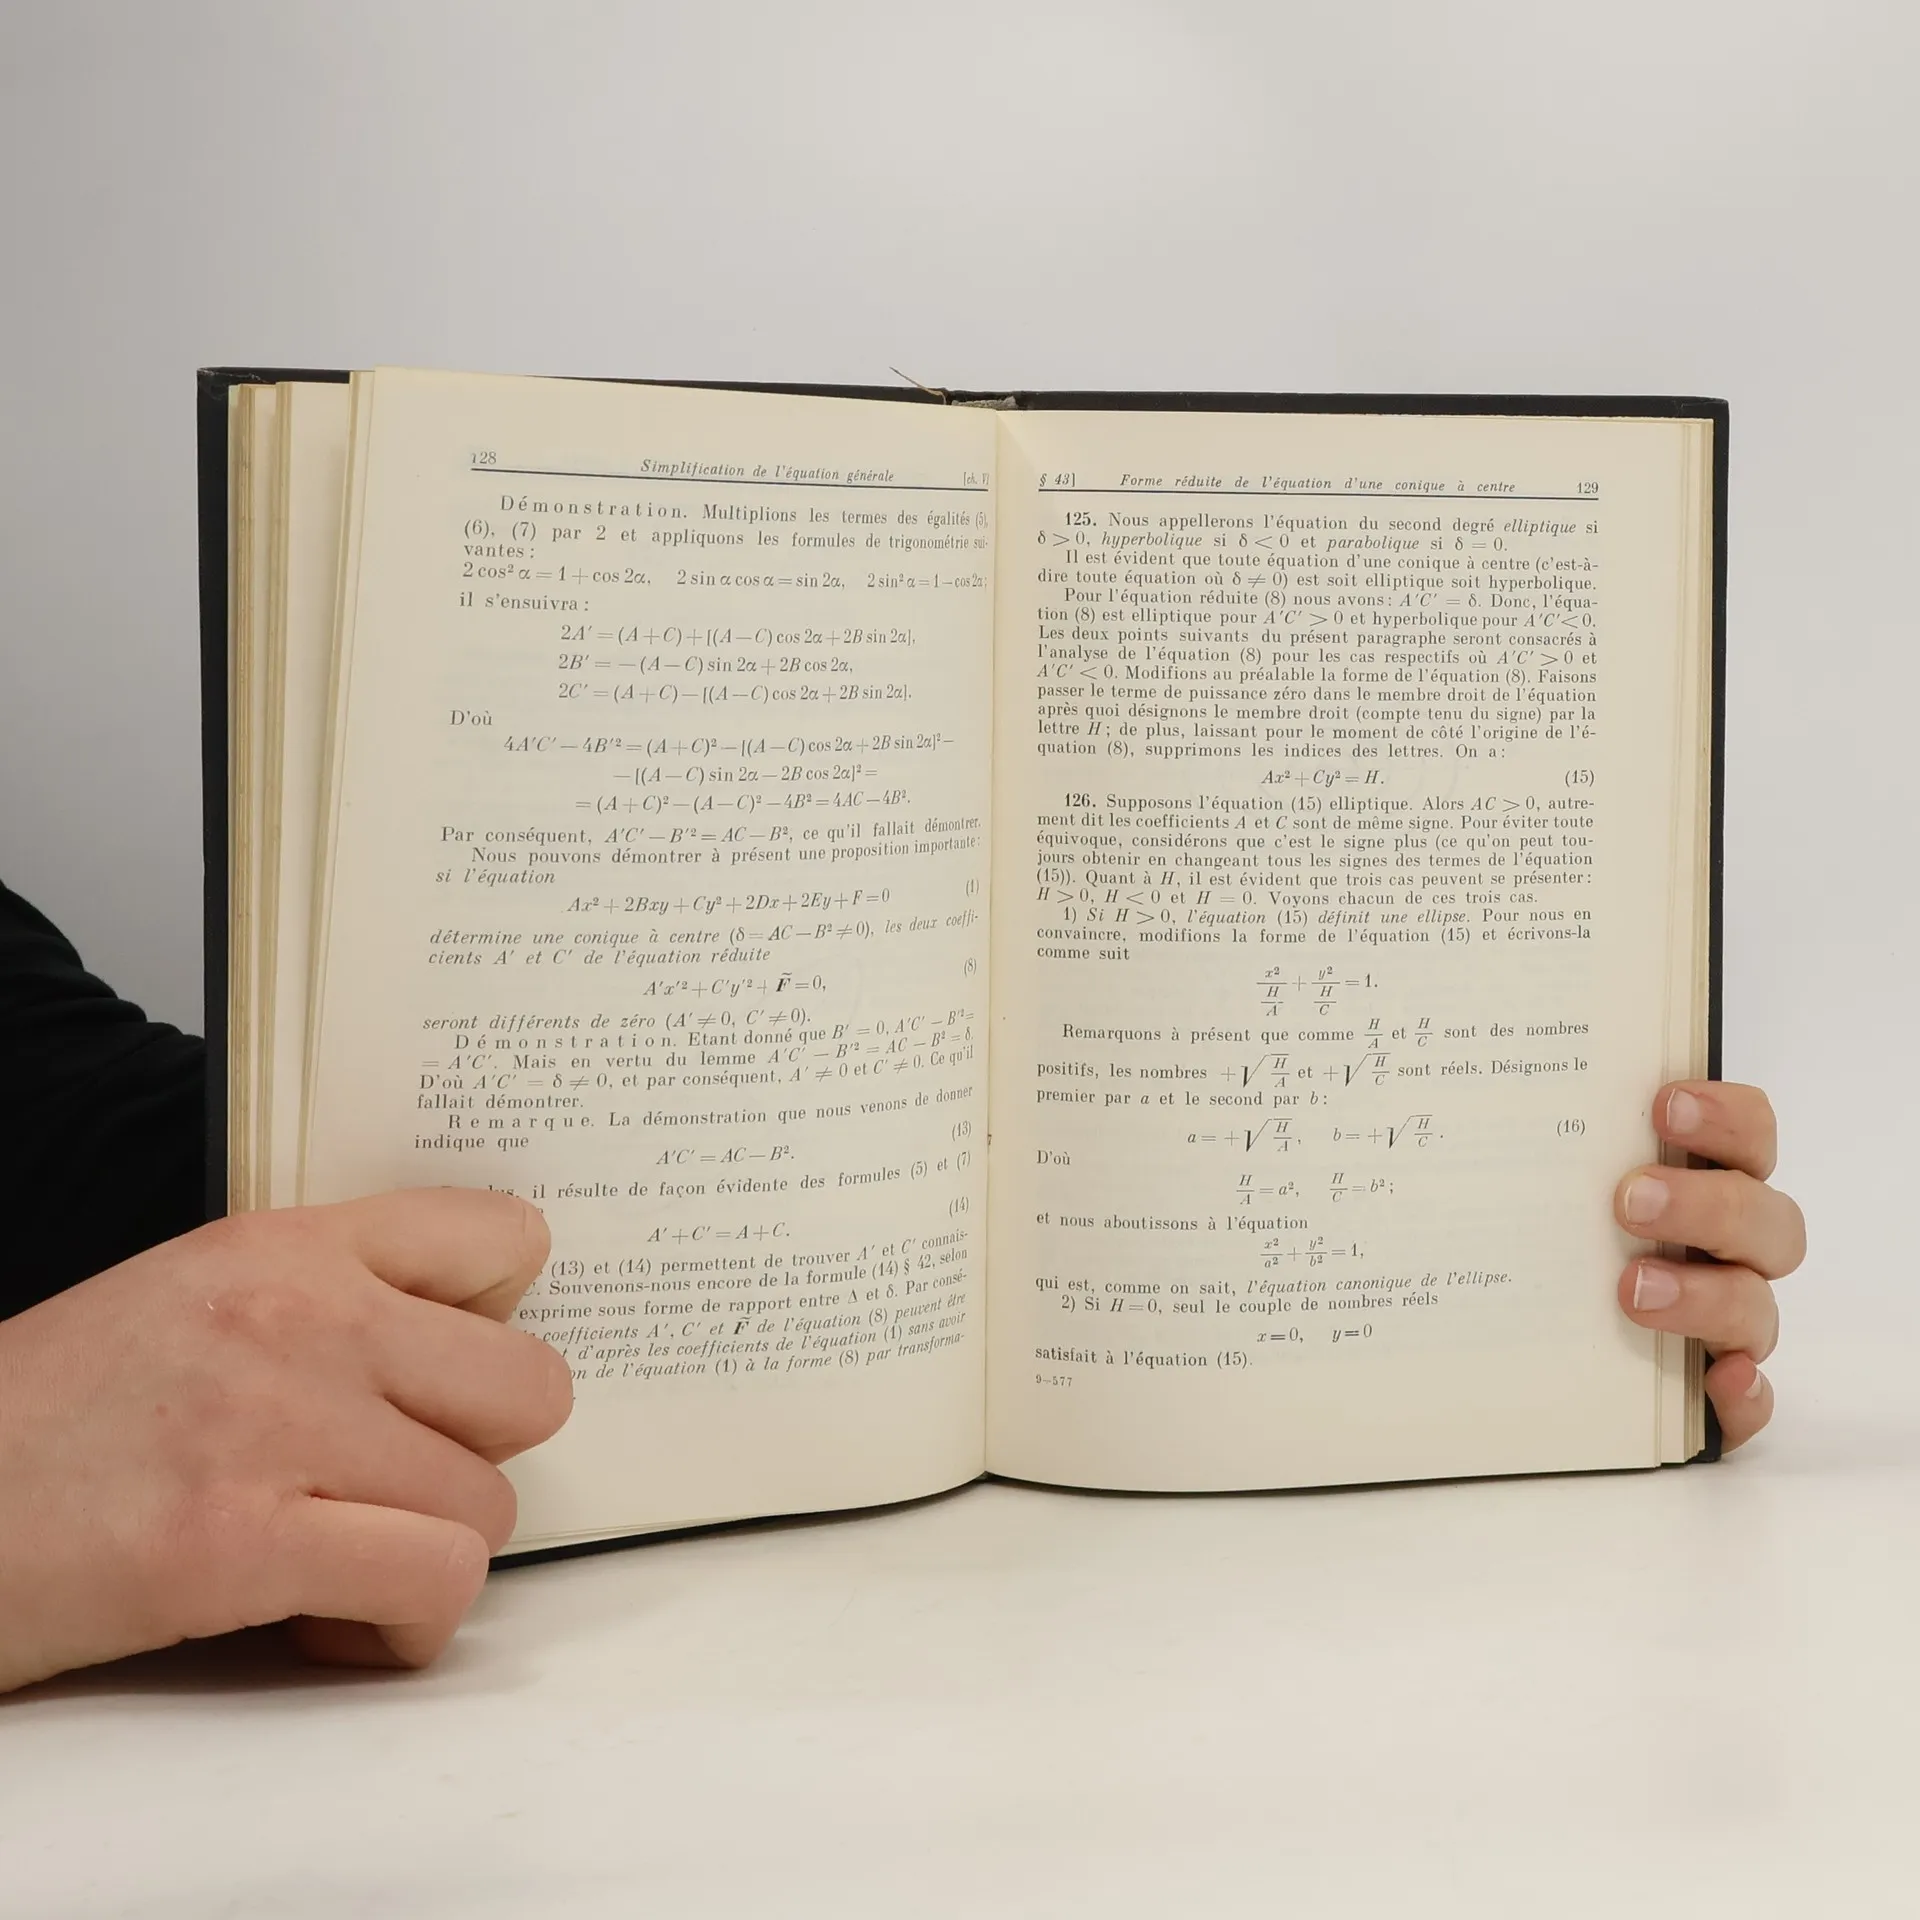 128 Simplification de l'équation générale [ch. V]
Démonstration. Multiplions les termes des égalités (5),
(6), (7) par 2 et appliquons les formules de trigonométrie sui-
vantes :
2 cos² α = 1 + cos 2α, 2 sin α cos α = sin 2α, 2 sin² α = 1 — cos 2α;
il s'ensuivra :
2A′ = (A + C) + [(A — C) cos 2α + 2B sin 2α],
2B′ = — (A — C) sin 2α + 2B cos 2α,
2C′ = (A + C) — [(A — C) cos 2α + 2B sin 2α].
D'où
4A′C′ — 4B′² = (A + C)² — [(A — C) cos 2α + 2B sin 2α]² —
— [(A — C) sin 2α — 2B cos 2α]² =
= (A + C)² — (A — C)² — 4B² = 4AC — 4B².
Par conséquent, A′C′ — B′² = AC — B², ce qu'il fallait démontrer.
Nous pouvons démontrer à présent une proposition importante:
si l'équation
Ax² + 2Bxy + Cy² + 2Dx + 2Ey + F = 0 (1)
détermine une conique à centre (δ = AC — B² ≠ 0), les deux coeffi-
cients A′ et C′ de l'équation réduite
A′x′² + C′y′² + F̃ = 0, (8)
seront différents de zéro (A′ ≠ 0, C′ ≠ 0).
Démonstration. Etant donné que B′ = 0, A′C′ — B′² =
= A′C′. Mais en vertu du lemme A′C′ — B′² = AC — B² = δ.
D'où A′C′ = δ ≠ 0, et par conséquent, A′ ≠ 0 et C′ ≠ 0. Ce qu'il
fallait démontrer.
Remarque. La démonstration que nous venons de donner
indique que
A′C′ = AC — B². (13)
il résulte de façon évidente des formules (5) et (7)
A′ + C′ = A + C. (14)
(13) et (14) permettent de trouver A′ et C′ connais-
C. Souvenons-nous encore de la formule (14) § 42, selon
exprime sous forme de rapport entre Δ et δ. Par consé-
coefficients A′, C′ et F̃ de l'équation (8) peuvent être
d'après les coefficients de l'équation (1) sans avoir
de l'équation (1) à la forme (8) par transforma-
§ 43] Forme réduite de l'équation d'une conique à centre 129
125. Nous appellerons l'équation du second degré elliptique si
δ > 0, hyperbolique si δ < 0 et parabolique si δ = 0.
Il est évident que toute équation d'une conique à centre (c'est-à-
dire toute équation où δ ≠ 0) est soit elliptique soit hyperbolique.
Pour l'équation réduite (8) nous avons: A′C′ = δ. Donc, l'équa-
tion (8) est elliptique pour A′C′ > 0 et hyperbolique pour A′C′ < 0.
Les deux points suivants du présent paragraphe seront consacrés à
l'analyse de l'équation (8) pour les cas respectifs où A′C′ > 0 et
A′C′ < 0. Modifions au préalable la forme de l'équation (8). Faisons
passer le terme de puissance zéro dans le membre droit de l'équation
après quoi désignons le membre droit (compte tenu du signe) par la
lettre H; de plus, laissant pour le moment de côté l'origine de l'é-
quation (8), supprimons les indices des lettres. On a:
Ax² + Cy² = H. (15)
126. Supposons l'équation (15) elliptique. Alors AC > 0, autre-
ment dit les coefficients A et C sont de même signe. Pour éviter toute
équivoque, considérons que c'est le signe plus (ce qu'on peut tou-
jours obtenir en changeant tous les signes des termes de l'équation
(15)). Quant à H, il est évident que trois cas peuvent se présenter:
H > 0, H < 0 et H = 0. Voyons chacun de ces trois cas.
1) Si H > 0, l'équation (15) définit une ellipse. Pour nous en
convaincre, modifions la forme de l'équation (15) et écrivons-la
comme suit
x²/(H/A) + y²/(H/C) = 1.
Remarquons à présent que comme H/A et H/C sont des nombres
positifs, les nombres +√(H/A) et +√(H/C) sont réels. Désignons le
premier par a et le second par b:
a = +√(H/A), b = +√(H/C). (16)
D'où
H/A = a², H/C = b²;
et nous aboutissons à l'équation
x²/a² + y²/b² = 1,
qui est, comme on sait, l'équation canonique de l'ellipse.
2) Si H = 0, seul le couple de nombres réels
x = 0, y = 0
satisfait à l'équation (15).
9—577